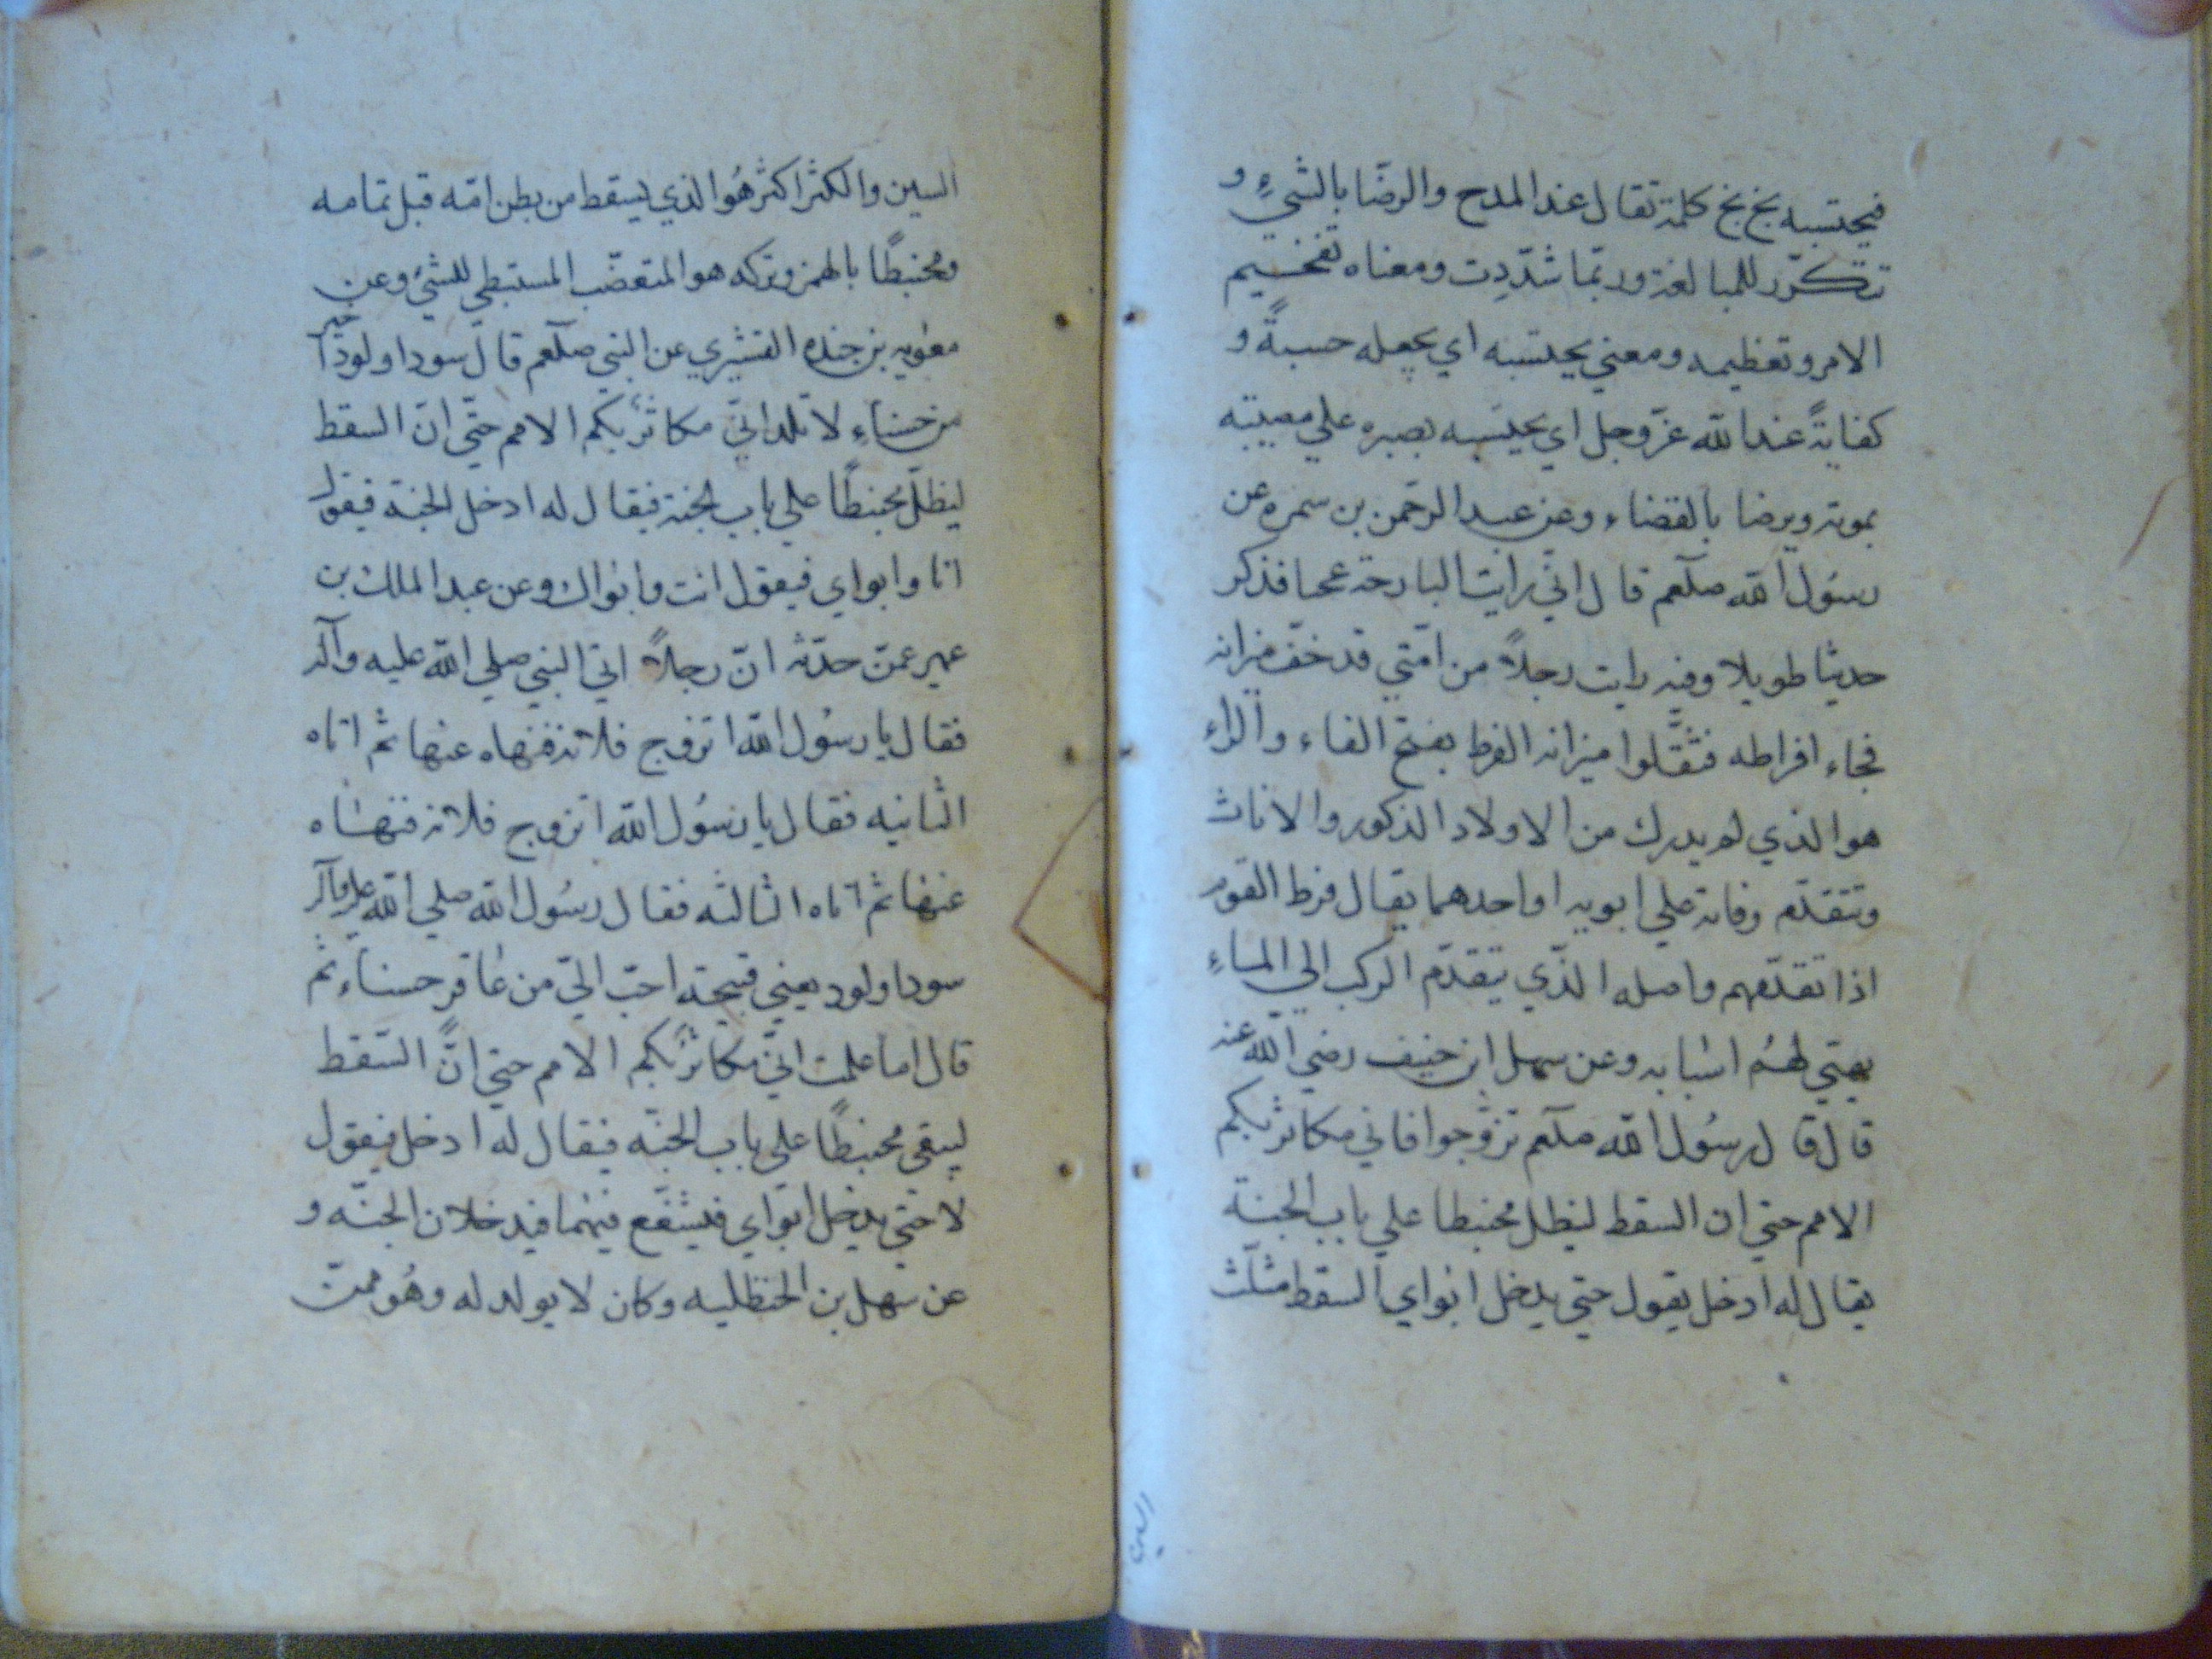 فيحتسبه بخ بخ كلمة تقال عند المدح والرضا بالشيءِ و
تتكرّر للمبالغة وربّما شدّدِت ومعناه تفخيم
الامر وتعظيمه ومعني يحتسبه اي يجعله حسبةً و
كفايةً عند الله عزّ وجل اي يحتسبه بصبره علي مصيبته
بموته ويرضا بالقضاء وعن عبد الرحمن بن سمره عن
رسُول الله صلعم قال انّي رايت البارحة عجبا فذكر
حديثا طويلا وفيه رايت رجلاً من امّتي قد خفّ ميزانه
فجاء افراطه فثقّلوا ميزانه الفرط بفتح الفاء والراء
هو الذي لم يدرك من الاولاد الذكور والاناث
وتتقدّم وفاته علي ابويه او احدهما يقال فرط القوم
اذا تقدّمهم واصله الذّي يتقدّم الركب الي الماءِ
يهيّي لهُم اسبابه وعن سهل ابن حنيف رضي الله عنه
قال قال رسُول الله صلعم تزوّجوا فاني مكاثر بكم
الامم حتي ان السقط ليظل محبنطا علي باب الجنة
يقال له ادخل يقول حتي يدخل ابواي السقط مثلّث
السين
السين والكثر اكثر هُو الذي يسقط من بطن امّه قبل تمامه
ومحبنطًا بالهمز وتركه هو المتغضّب المستبطي للشئ وعن
معٰويه بن حيده القشيري عن النبي صلعم قال سودا ولودًا خير
من حسناءِ لا تلد انّي مكاثر بكم الامم حتّي انّ السقط
ليظلّ محبنطًا علي باب الجنة فيقال له ادخل الجنة فيقول
انا وابواي فيقول انت وابواك وعن عبد الملك بن
عمير عمّن حدّثه انّ رجلاً اتي النبي صلي الله عليه وآله
فقال يا رسُول الله اتزوج فلانة فنهاه عنها ثم اتاه
الثانيه فقال يا رسُول الله اتزوج فلانة فنهاه
عنها ثم اتاه الثالثه فقال رسُول الله صلي الله عليه وآله
سودا ولود يعني قبيحة احبّ اليّ من عاقر حسناء ثم
قال اما علمت انّي مكاثر بكم الامم حتي انّ السّقط
ليبقي محبنطًا علي باب الجنّه فيقال له ادخل فيقول
لا حتي يدخل ابواي فيشفّع فيهما فيدخلان الجنّه و
عن سهل بن الحنظليه وكان لا يولد له وهُو ممّن